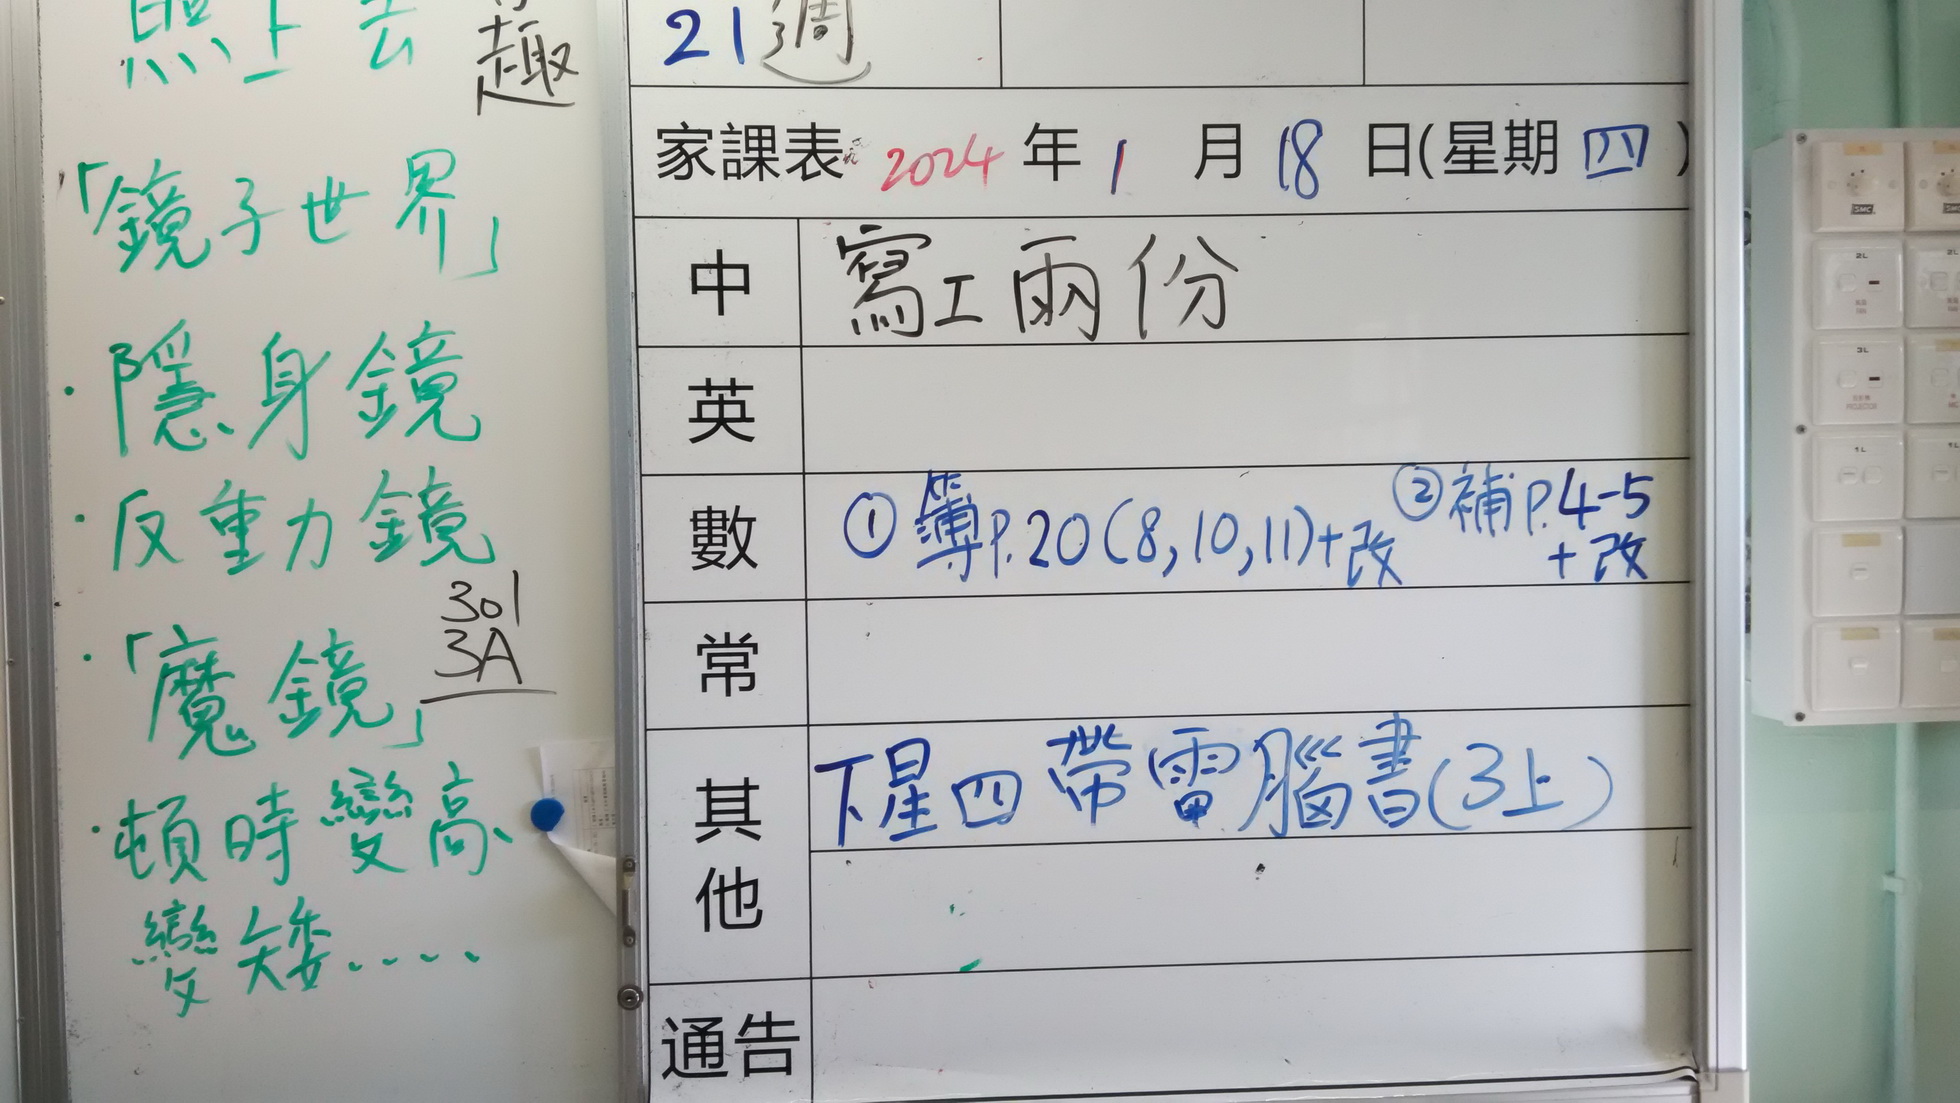 照上去
趣
「鏡子世界」
·隱身鏡
·反重力鏡
301
3A
·「魔鏡」
·頓時變高、
變矮....
21週
家課表 2024年1月18日(星期四)
中 寫工兩份
英
數 ①簿P.20(8,10,11)+改 ②補P.4-5
+改
常
其他 下星四帶電腦書(3上)
通告
SMC
2L
3L
PROJECTOR
1L